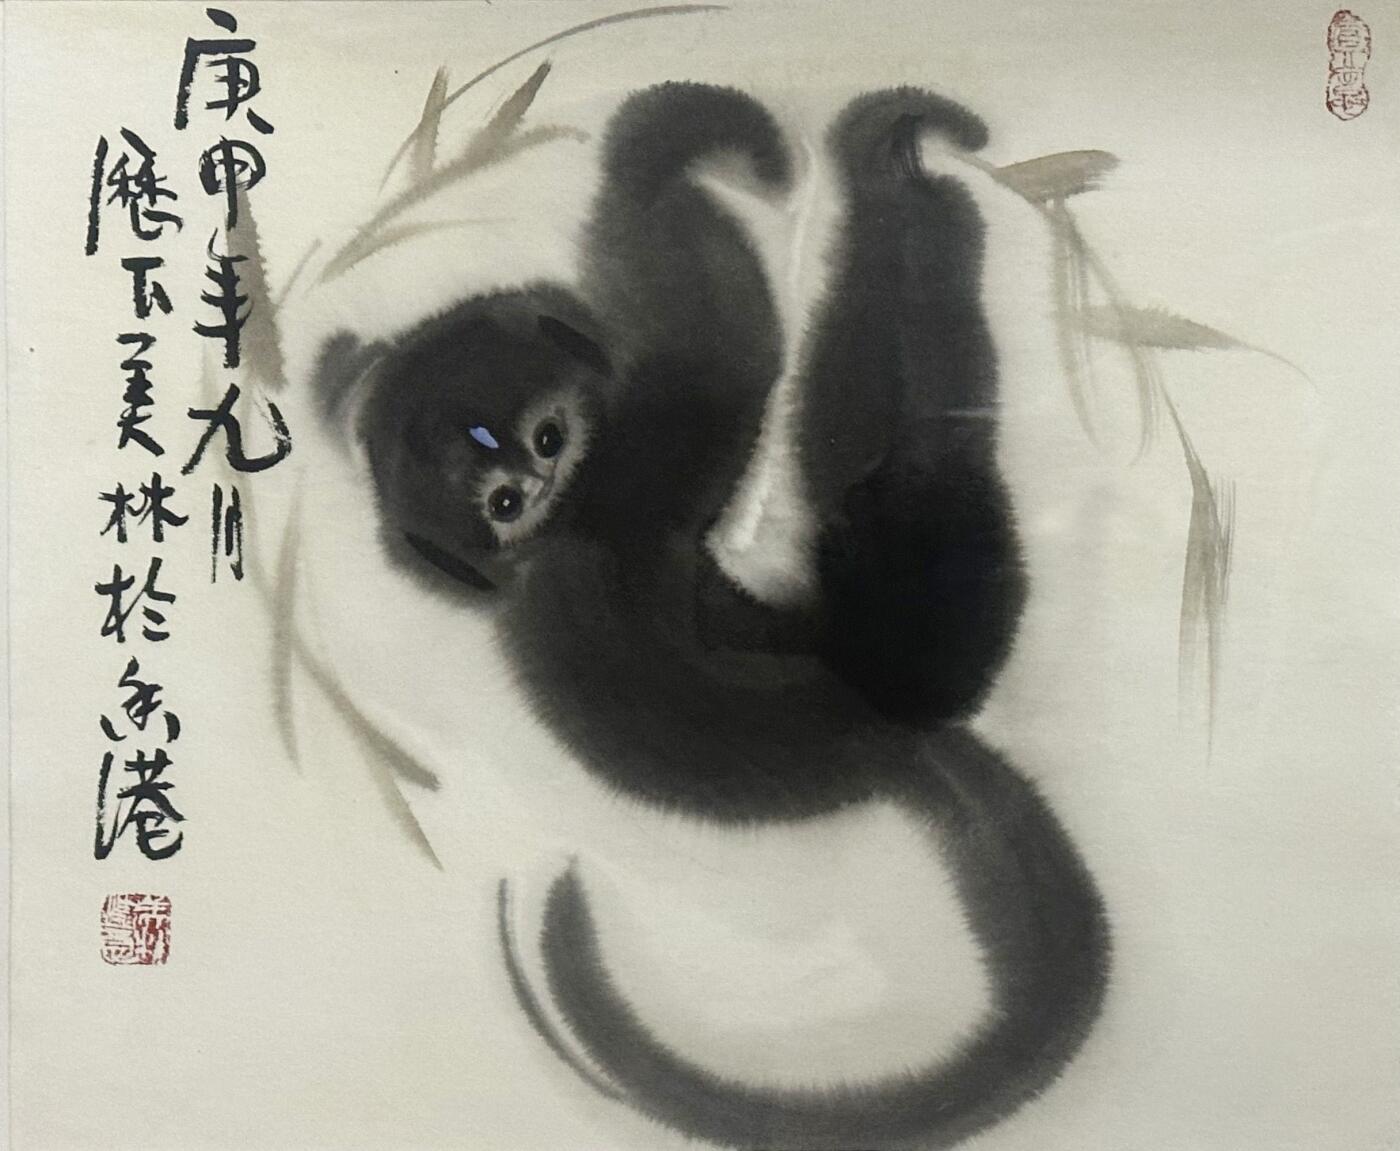 庚申年九月
歷下美林於香港